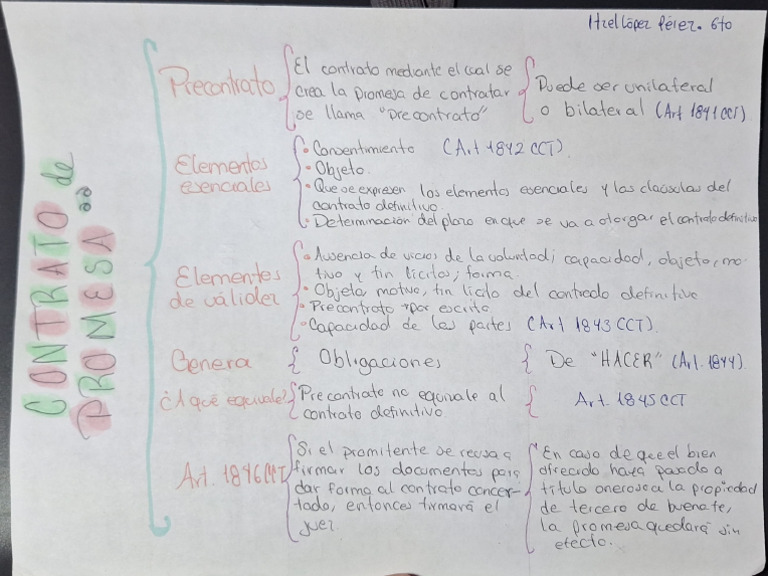 Itzel López Pérez. 6to
CONTRATO de
PROMESA
Precontrato
El contrato mediante el cual se
crea la promesa de contratar
se llama "precontrato"
Puede ser unilateral
o bilateral (Art 1841 CCT)
Elementos
esenciales
• Consentimiento (Art 1842 CCT)
• Objeto.
• Que se expresen los elementos esenciales y las claúsulas del
contrato definitivo.
• Determinación del plazo en que se va a otorgar el contrato definitivo
Elementos
de válidez
• Ausencia de vicios de la voluntad; capacidad, objeto, mo-
tivo y fin lícitos; forma.
• Objeto, motivo, fin lícito del contrado definitivo
• Precontrato por escrito
• Capacidad de las partes (Art 1843 CCT).
Genera
Obligaciones
De "HACER" (Art. 1844).
¿A qué equivale?
Precontrato no equivale al
contrato definitivo.
Art. 1845 CCT
Art. 1846 CCT
Si el promitente se reusa a
firmar los documentos para
dar forma al contrato concer-
tado, entonces firmará el
juez.
En caso de que el bien
ofrecido haya pasado a
título oneroso a la propiedad
de tercero de buena fe,
la promesa quedará sin
efecto.